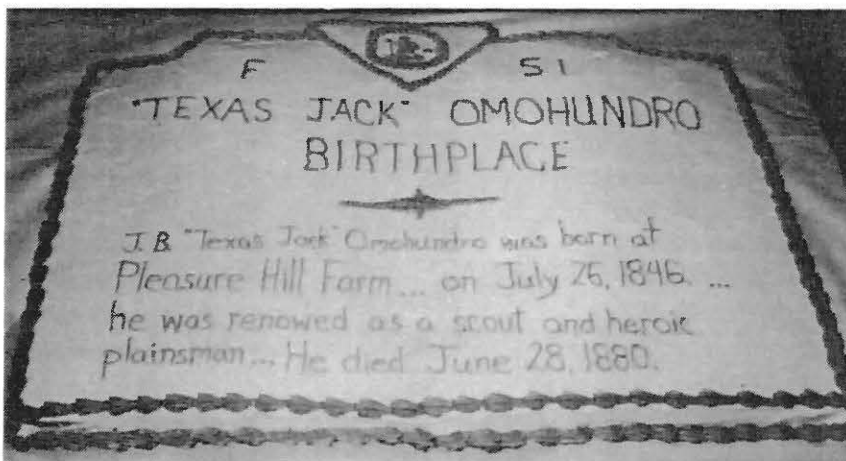 F 51
"TEXAS JACK" OMOHUNDRO
BIRTHPLACE
J.B. "Texas Jack" Omohundro was born at
Pleasure Hill Farm... on July 26, 1846. ...
he was renowed as a scout and heroic
plainsman... He died June 28, 1880.